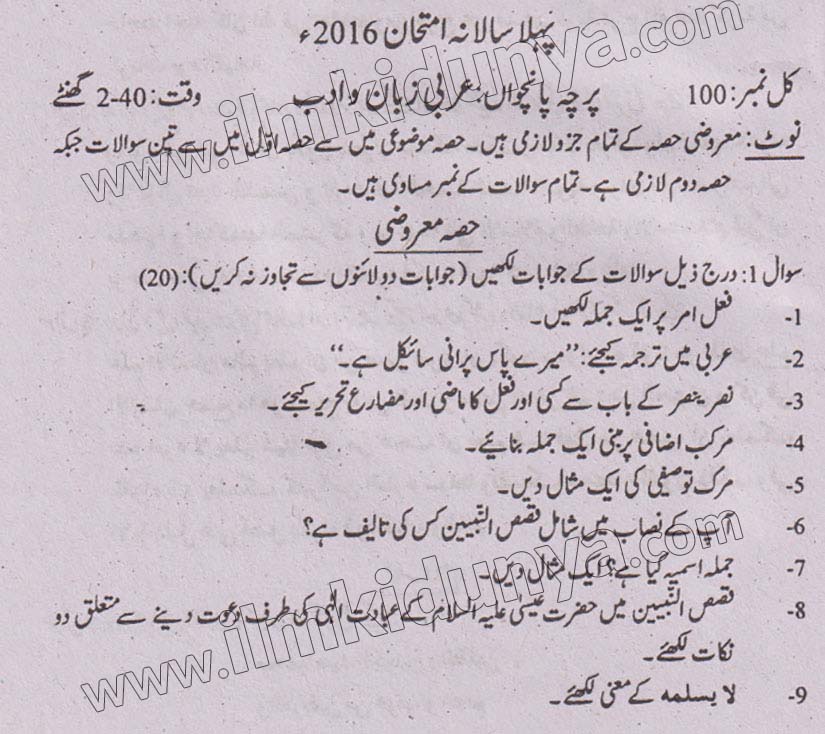 پہلا سالانہ امتحان 2016ء
کل نمبر: 100 پرچہ پانچواں: عربی زبان و ادب وقت: 40-2 گھنٹے
نوٹ: معروضی حصہ کے تمام جزو لازمی ہیں۔ حصہ موضوعی میں سے حصہ اوّل میں سے تین سوالات جبکہ
حصہ دوم لازمی ہے۔ تمام سوالات کے نمبر مساوی ہیں۔
حصہ معروضی
سوال 1: درج ذیل سوالات کے جوابات لکھیں (جوابات دو لائنوں سے تجاوز نہ کریں): (20)
1- فعل امر پر ایک جملہ لکھیں۔
2- عربی میں ترجمہ کیجئے: ’’میرے پاس پرانی سائیکل ہے۔‘‘
3- نصر ینصر کے باب سے کسی اور فعل کا ماضی اور مضارع تحریر کیجئے۔
4- مرکب اضافی پر مبنی ایک جملہ بنائیے۔
5- مرکب توصیفی کی ایک مثال دیں۔
6- آپ کے نصاب میں شامل قصص النّبیین کس کی تالیف ہے؟
7- جملہ اسمیہ کیا ہے؟ ایک مثال دیں۔
8- قصص النّبیین میں حضرت عیسیٰ علیہ السلام کے عبادت الٰہی کی طرف دعوت دینے سے متعلق دو
نکات لکھئے۔
9- لا یسلمه کے معنی لکھئے۔
www.ilmkidunya.com
www.ilmkidunya.com